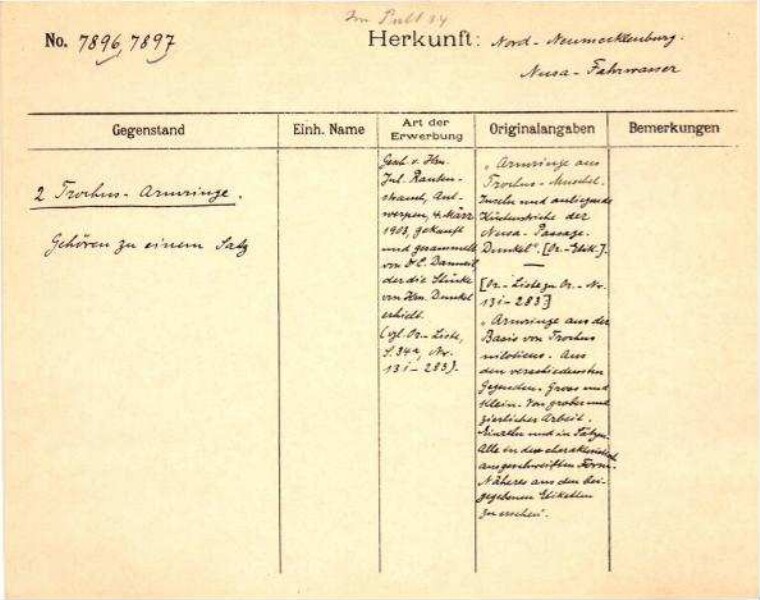 Im Pult 14
No. 7896, 7897
Herkunft: Nord-Neumecklenburg.
Nusa-Fahrwasser
Gegenstand
Einh. Name
Art der Erwerbung
Originalangaben
Bemerkungen
2 Trochus-Armringe.
Gehören zu einem Satz
Gesch. v. Hrn.
Jul. Rauten-
strauch, Ant-
werpen, 4. März
1903, gekauft
und gesammelt
von
der die Stücke
von Hrn. Dunkel
erhielt.
(vgl. Or.-Liste,
S. 34a, Nr.
13i-283).
„Armringe aus
Trochus-Muschel.
Inseln und anliegende
Küstenstriche der
Nusa-Passage.
Dunkel". [Or.-Etik.].
[Or.-Liste zu Or.-Nr.
13i-283]
„Armringe aus der
Basis von Trochus
niloticus. Aus
den verschiedensten
Gegenden. Gross und
Klein. Von grober und
zierlicher Arbeit.
Einzeln und in Sätzen.
Alle in der charakteristisch
ausgeschweiften Form.
Näheres aus den bei-
gegebenen Etiketten
zu ersehen".